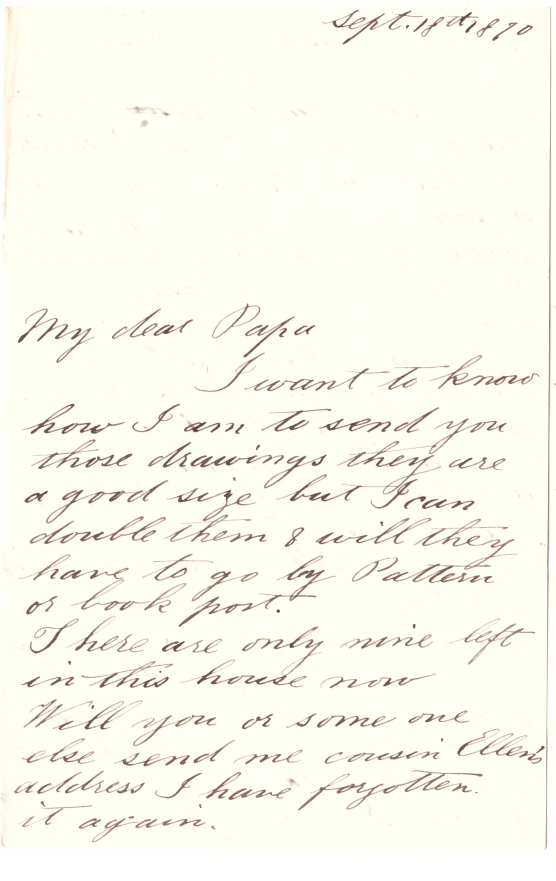 Sept. 18th 1870
My dear Papa
I want to know
how I am to send you
those drawings they are
a good size but I can
double them & will they
have to go by Pattern
or book post.
There are only nine left
in this house now
Will you or some one
else send me cousin Ellen's
address I have forgotten.
it again.